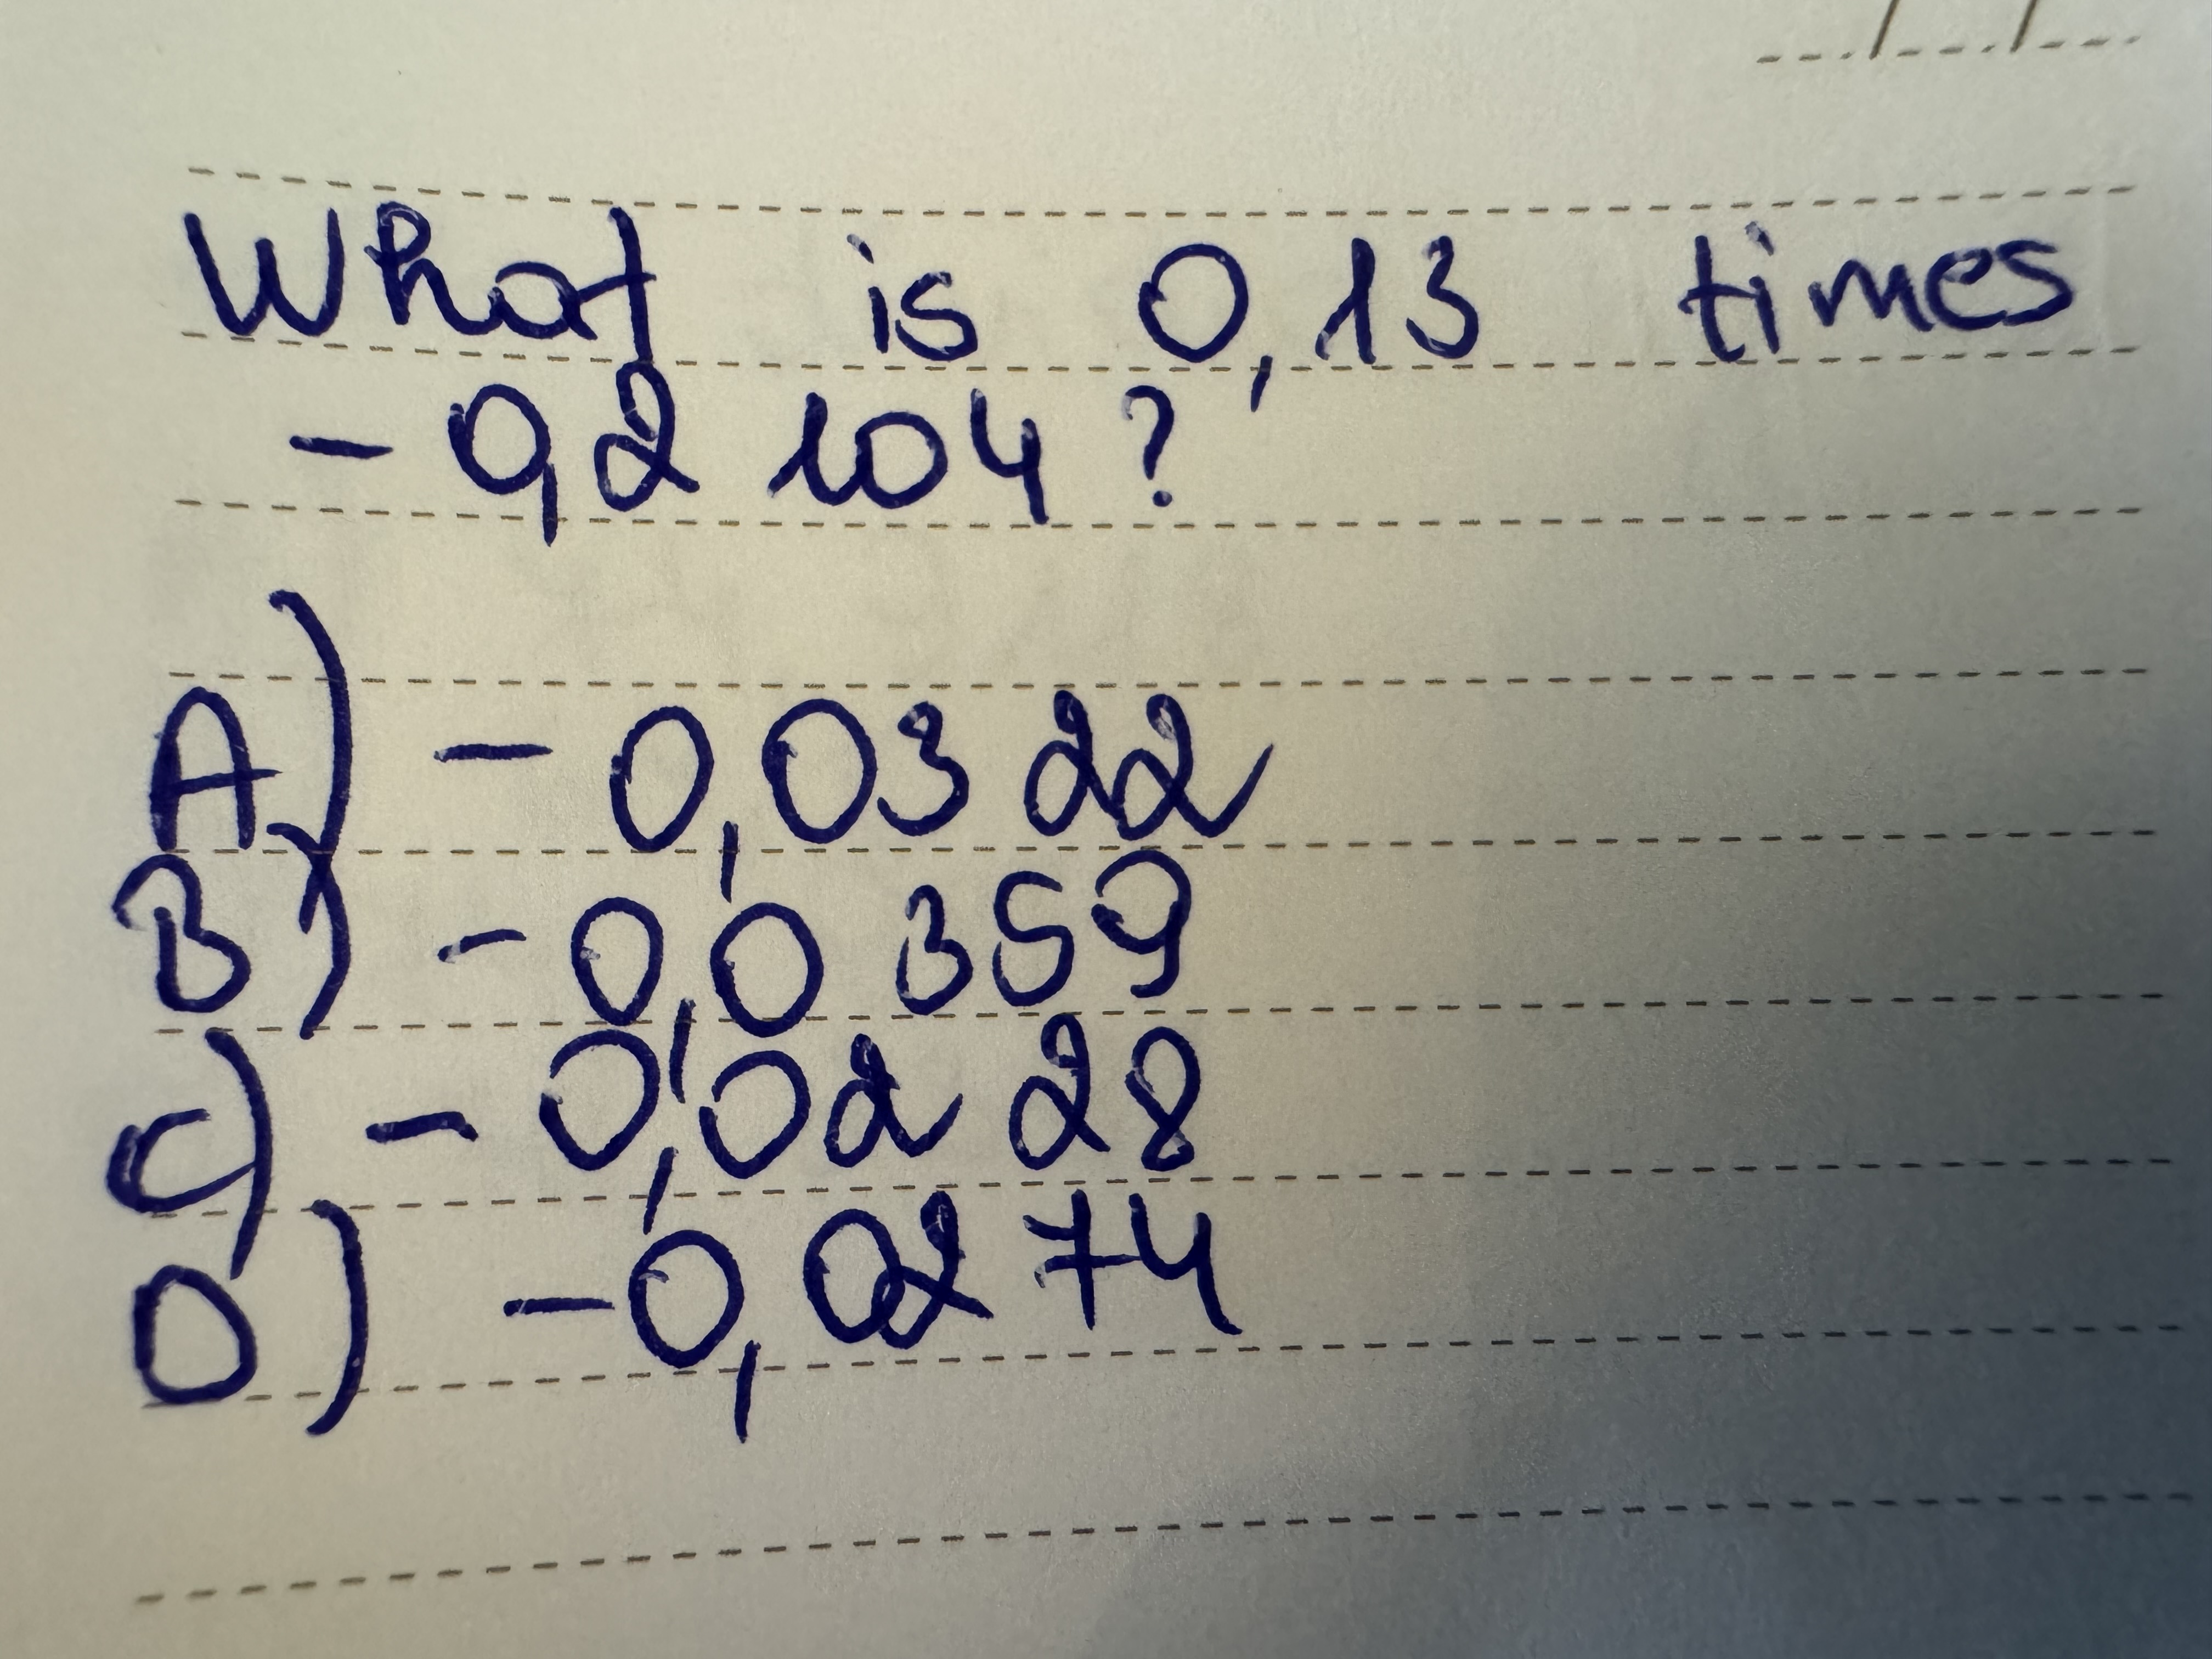 What is 0,13 times
- 0,2 104 ?
A) - 0,03 22
B) - 0,0 359
C) - 0,02 28
D) - 0,02 74